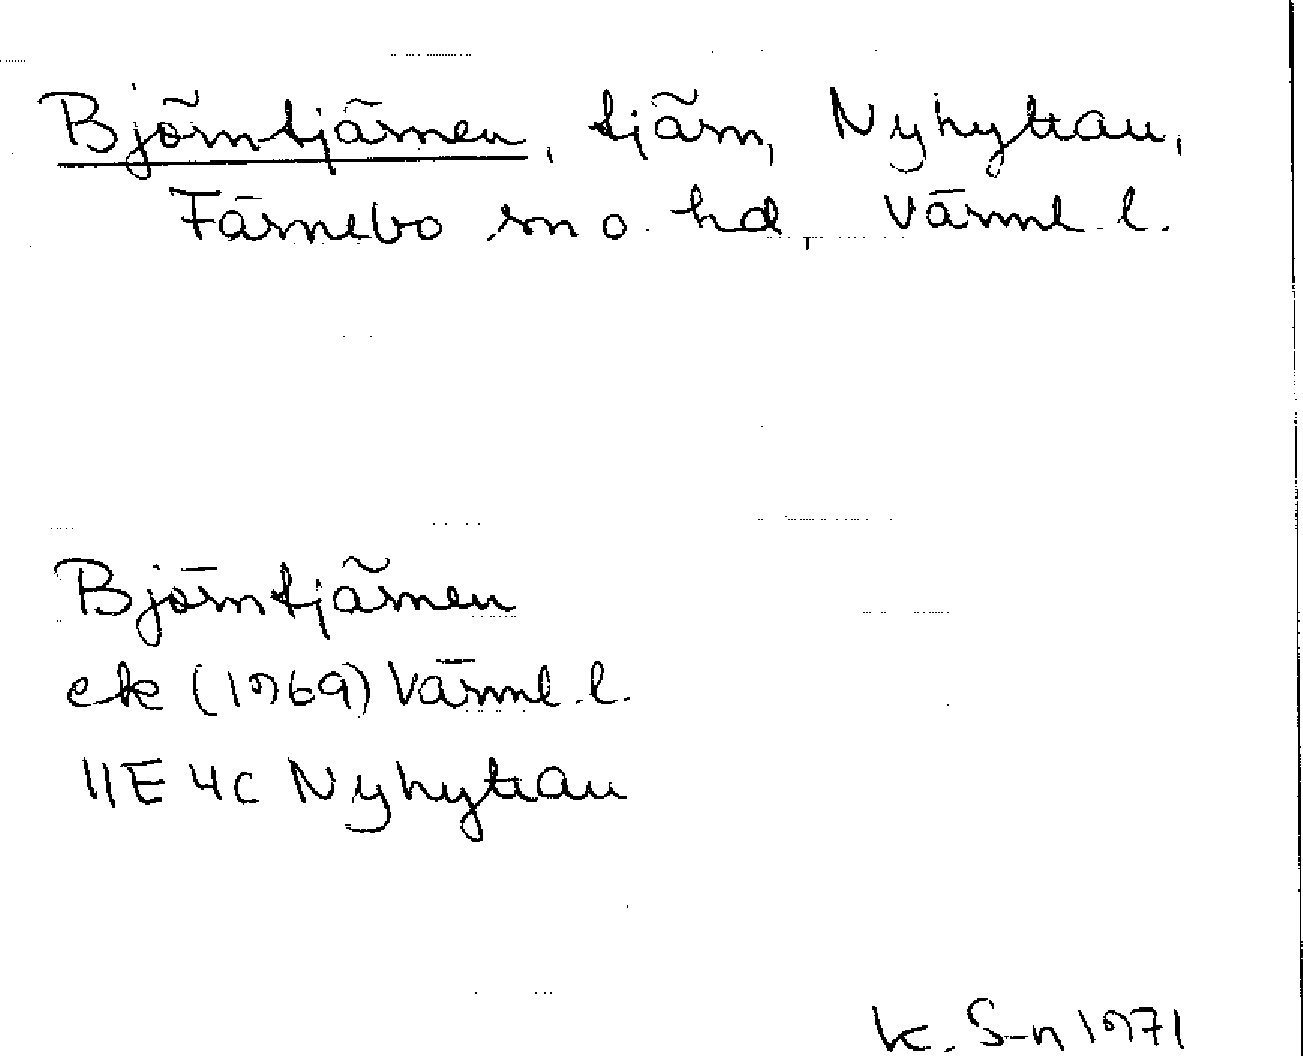 Björntjärnen, tjärn, Nyhyttan,
Färnebo sn o. hd, Värml. l.
Björntjärnen
ek (1969) Värml. l.
11E 4c Nyhyttan
K. S-n 1971